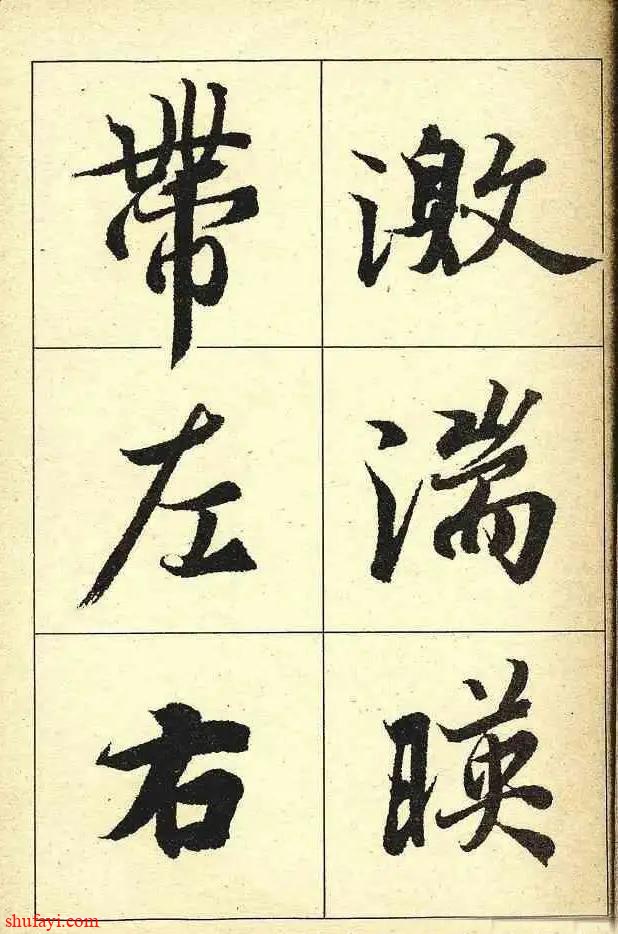 激湍暎
帶左右
shufayi.com